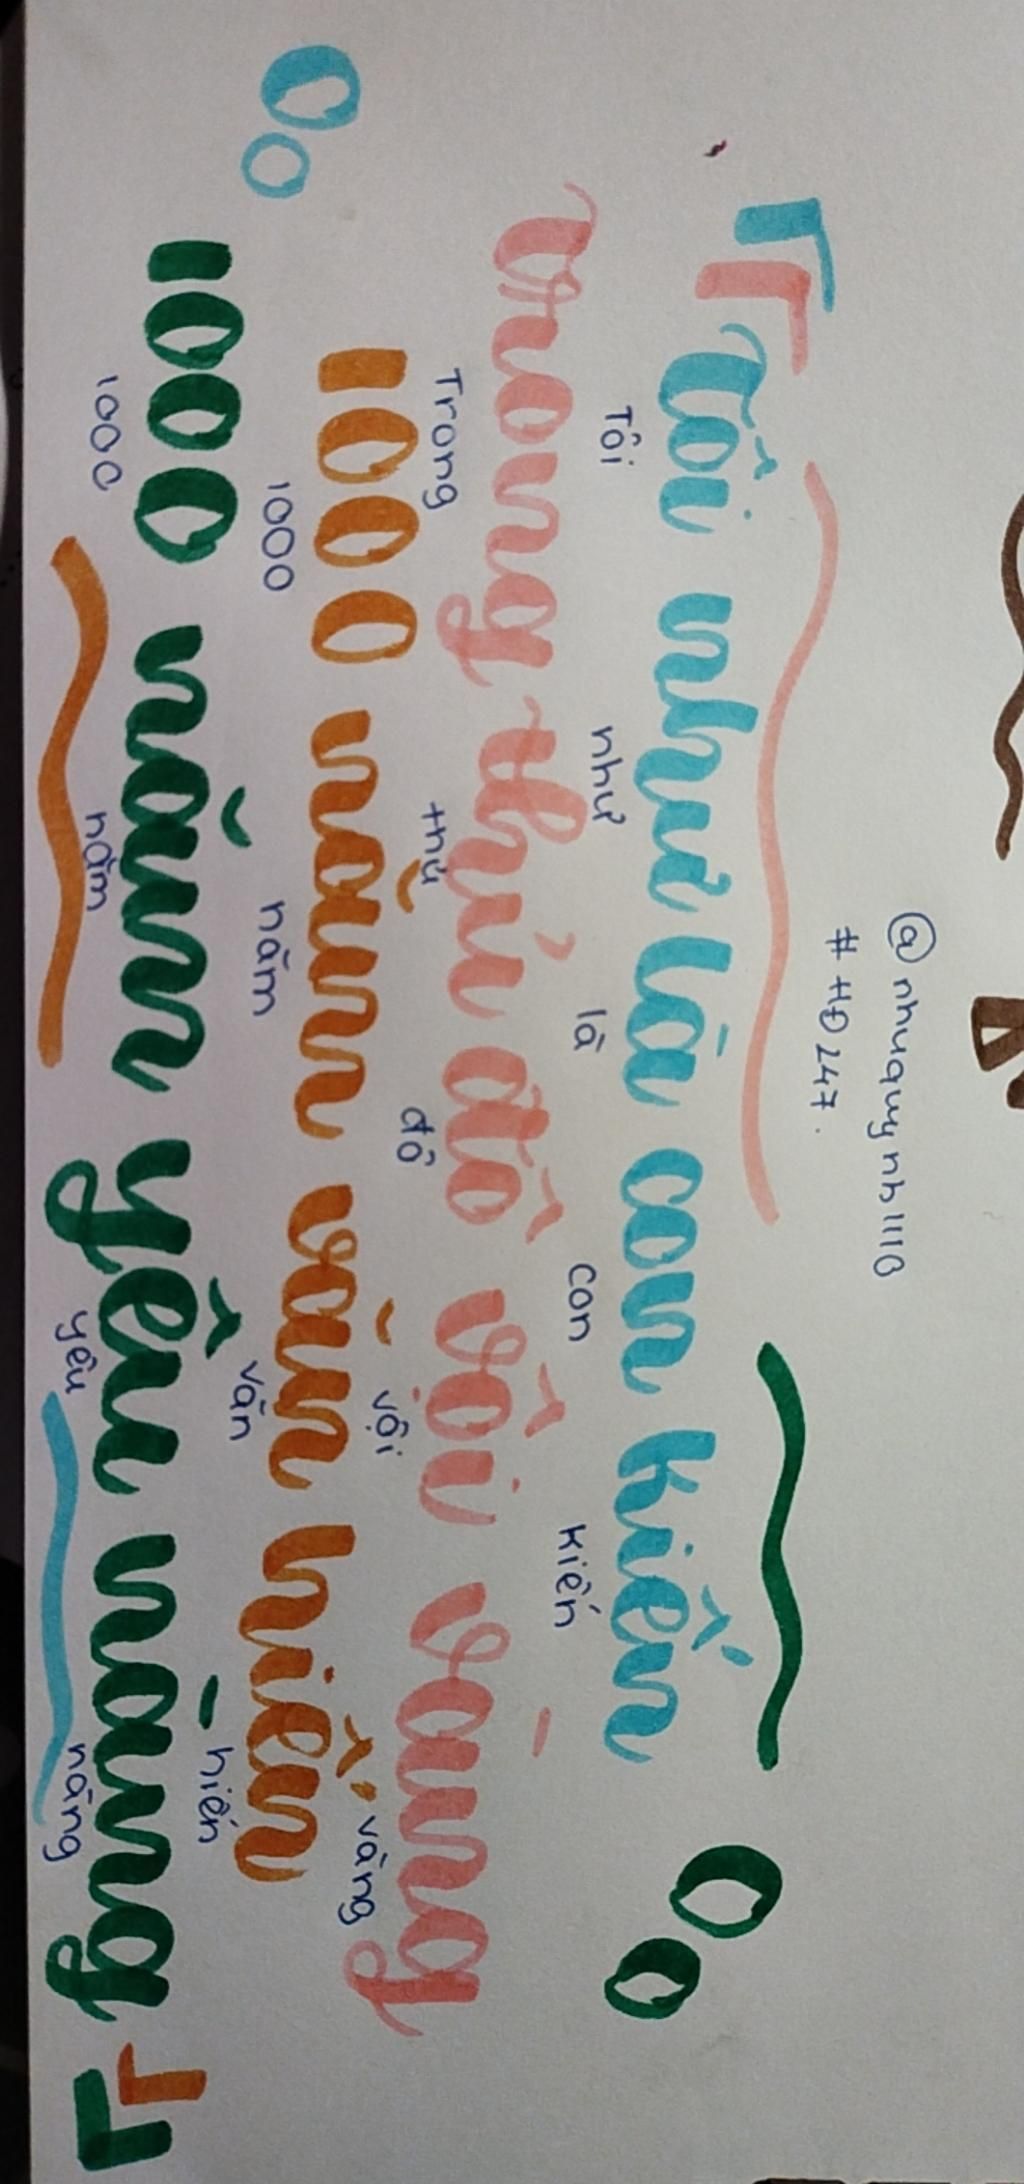 @nhuquynh1110
#HĐ247.
Tôi như là con kiến
Tôi như là con kiến
Trong thủ đô vội vàng
Trong thủ đô vội vàng
1000 năm văn hiến
1000 năm văn hiến
1000 năm yêu nàng
1000 năm yêu nàng